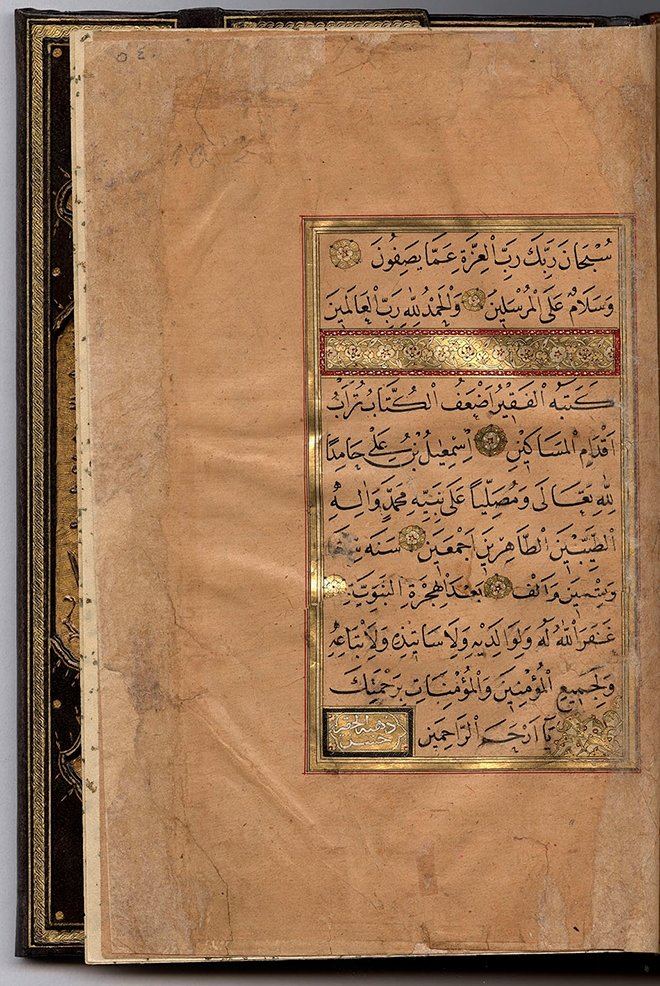 سُبْحَانَ رَبِّكَ رَبِّ الْعِزَّةِ عَمَّا يَصِفُونَ
وَسَلَامٌ عَلَى الْمُرْسَلِينَ وَالْحَمْدُ لِلّٰهِ رَبِّ الْعَالَمِينَ
كَتَبَهُ الْفَقِيرُ اَضْعَفُ الْكُتَّابِ تُرَابُ
اَقْدَامِ الْمَسَاكِينِ اِسْمٰعِيلُ بْنُ عَلِي حَامِدًا
لِلّٰهِ تَعَالَى وَمُصَلِّيًا عَلَى نَبِيِّهِ مُحَمَّدٍ وَاٰلِهِ
الطَّيِّبِينَ الطَّاهِرِينَ اَجْمَعِينَ سَنَه
وَاَلْف بَعْدَ الْهِجْرَةِ النَّبَوِيَّةِ
غَفَرَ اللّٰهُ لَهُ وَلِوَالِدَيْهِ وَلِاَسَاتِذِهِ وَلِاَتْبَاعِهِ
وَلِجَمِيعِ الْمُؤْمِنِينَ وَالْمُؤْمِنَاتِ بِرَحْمَتِكَ
يَا اَرْحَمَ الرَّاحِمِينَ
ذهبه الحقير
حسن